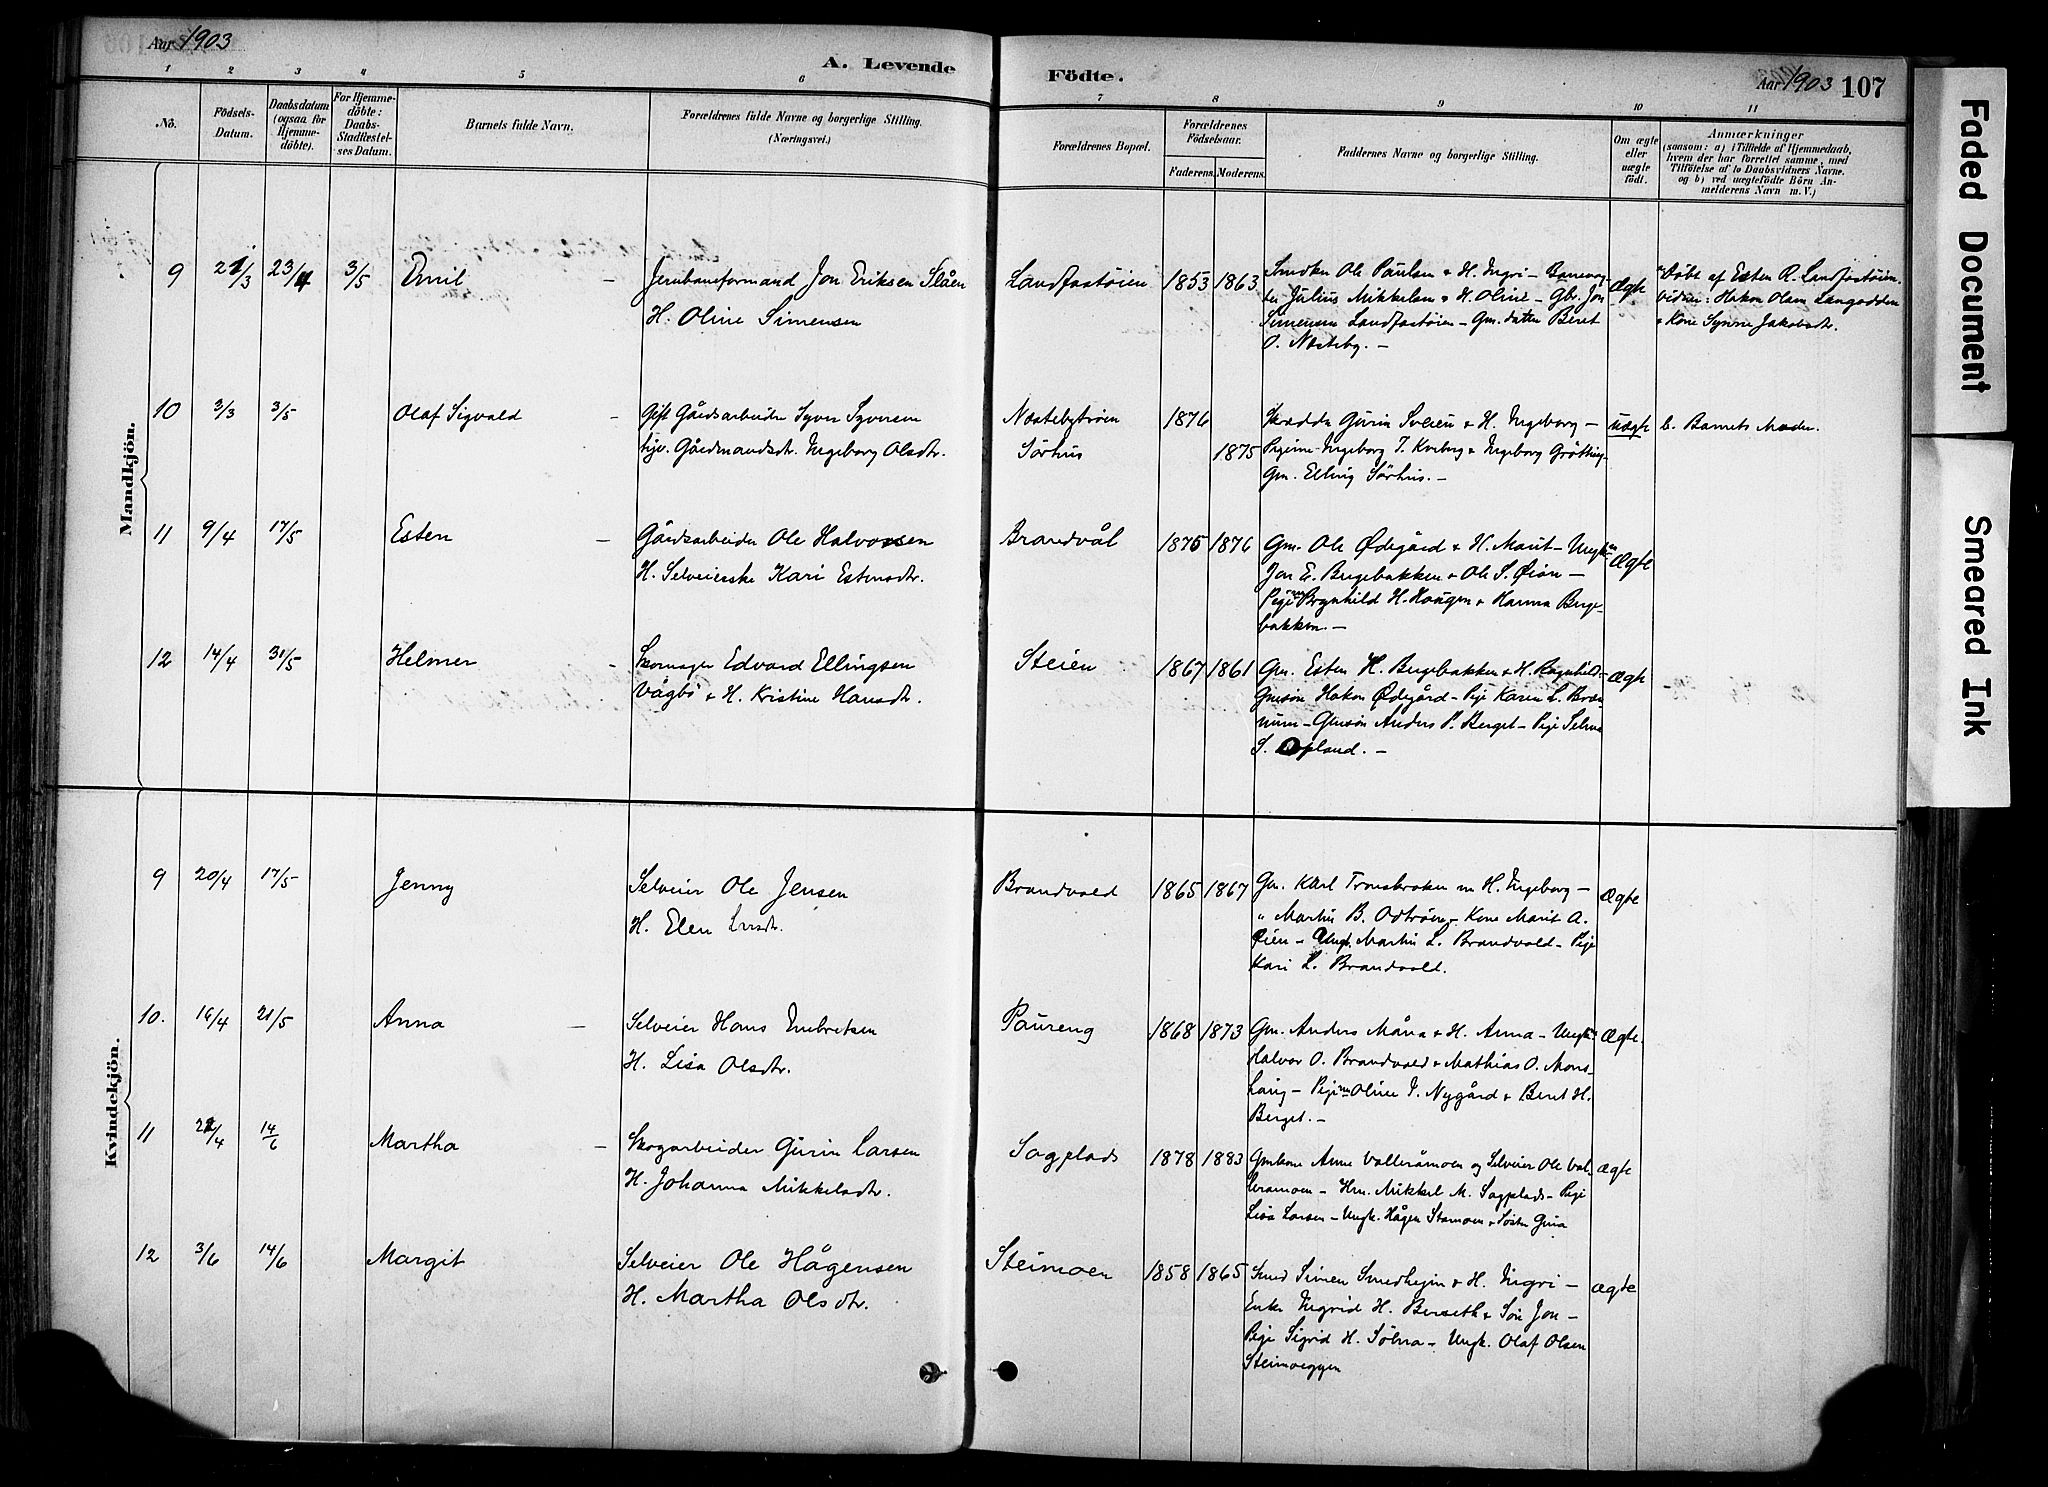 Aar 1903
A. Levende
Födte.
Aar 1903 107
1 2 3 4 5 6 7 8 9 10 11
No.
Födsels-
Datum.
Daabsdatum
(ogsaa for
Hjemme-
döbte).
For Hjemme-
döbte:
Daabs-
Stadfæstel-
ses Datum.
Barnets fulde Navn.
Forældrenes fulde Navne og borgerlige Stilling.
(Næringsvei.)
Forældrenes Bopæl.
Forældrenes
Födselsaar.
Faderens. Moderens.
Faddernes Navne og borgerlige Stilling.
Om ægte
eller
uægte
födt.
Anmærkninger
(saasom: a) i Tilfælde af Hjemmedaab,
hvem der har forrettet samme, med
Tilföielse af to Daabsvidners Navne.
og b) ved uægtefödte Börn An-
melderens Navn m.V.)
Mandkjön.
9 21/3 23/4 3/5 Emil - Jernbaneformand Jon Eriksen Slåen
H. Oline Simensen
Landfastøien 1853 1863
Smeden Ole Paulsen & H. Ingri -
Julius Mikkelsen & H. Oline - Gbr. Jon
Simensen Landfastøien - Gm. datter Beret
O. Næsteby. -
Ægte
Døbt af Esten R. Landfastøien.
Vidner: Hakon Olsen Langodden
& Kone Synne Jakobsdtr.
10 3/3 3/5 Olaf Sigvald - Gift Gårdsarbeider Syver Syversen
Pige. Gårdmandsdtr. Ingeborg Olsdtr.
Næstebytrøen 1876
Sørhus 1875
Skrædder Gurin Sveien & H. Ingeborg -
Pigerne Ingeborg T. Kveberg & Ingeborg Grøtting
Gm. Elling Sørhus. -
uægte
b. Barnets Moder.
11 9/4 17/5 Esten - Gårdsarbeider Ole Halvorsen
H. Selveierske Kari Estensdtr.
Brandvål 1875 1876
Gm. Ole Ødegård & H. Marit - Ungk.
Jon E. Bergebakken & Ole S. Øien -
Pigerne Brynhild H. Haugen & Hanna Berge-
bakken. -
Ægte
12 14/4 31/5 Helmer - Skomager Edvard Ellingsen
Vågbø & H. Kristine Hansdtr.
Steien 1867 1861
Gm. Esten H. Bergebakken & H. Ragnhild -
Gmsøn Hakon Ødegård - Pige Karen L. Bræ-
num - Gmsøn Anders P. Berget - Pige Selma
S. Opland. -
Ægte
Kvindekjön.
9 20/4 17/5 Jenny Selveier Ole Jensen
H. Elen Larsdtr.
Brandvold 1865 1867
Gm. Karl Tronsbroken m H. Ingeborg -
" Martin B. Odtrøen - Kone Marit A.
Øien - Ungk. Martin L. Brandvold - Pige
Kari L. Brandvold.
Ægte
10. 16/4 21/5 Anna - Selveier Hans Embretsen
H. Lisa Olsdtr.
Paureng 1868 1873
Gm. Anders Måna & H. Anna - Ungk.
Halvor O. Brandvold & Mathias O. Mons-
haug - Pigerne Oline P. Nygård & Beret H.
Berget. -
Ægte.
11 21/4 14/6 Martha - Skogarbeider Gurin Larsen
H. Johanna Mikkelsdtr.
Sagplads 1878 1883
Gmkone Anne Valleråmoen og Selveier Ole Val-
leramoen - Hm. Mikkel M. Sagplads - Pige
Lisa Larsen - Ungk. Hågen Stamoen & Søster Gina
Ægte
12 3/6 14/6 Margit Selveier Ole Hågensen
H. Martha Olsdtr.
Steimoen 1858 1865
Smed Simen Smedhegin & H. Ingri -
Enke Ingrid H. Berseth & Søn Jon -
Pige Sigrid H. Sølna - Ungk. Olaf Olsen
Steimoeggen
Ægte
Faded Document
Smeared Ink